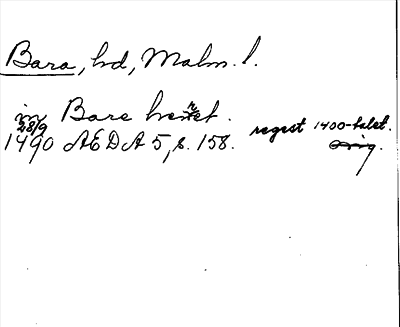 Bara, hd, Malm. l.
in Bare heret. regest 1400-talet.
28/9
1490 ÆDA 5, s. 158. orig.